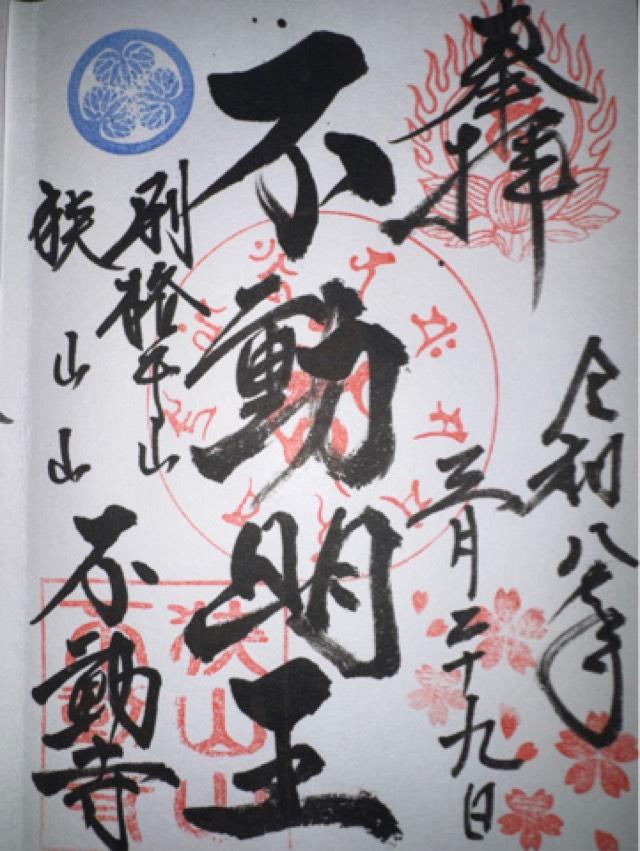 奉拝
令和八年
三月二十九日
不動明王
別格本山
狹山山
不動寺
狹山山